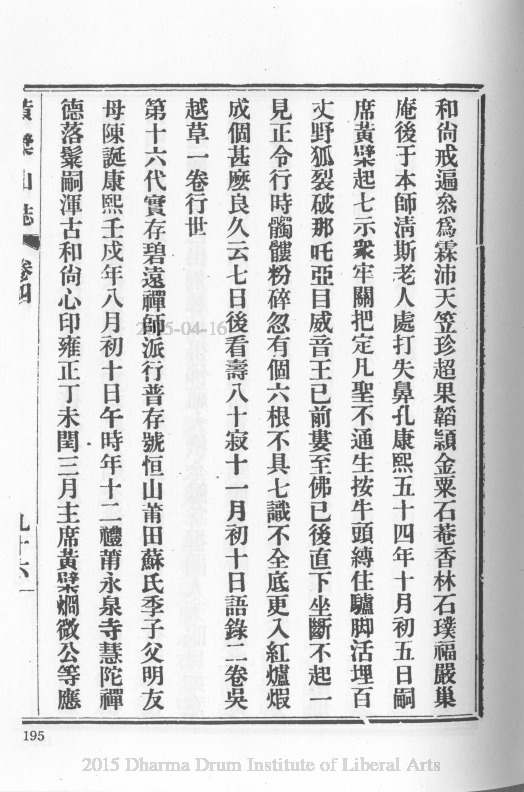 和尚戒遍叅爲霖沛天笠珍超果韜頴金粟石菴香林石璞福嚴巢
庵後于本師淸斯老人處打失鼻孔康熙五十四年十月初五日嗣
席黃檗起七示衆牢關把定凡聖不通生按牛頭縛住驢脚活埋百
丈野狐裂破那吒亞目威音王已前婁至佛已後直下坐斷不起一
見正令行時髑髏粉碎忽有個六根不具七識不全底更入紅爐煆
成個甚麽良久云七日後看壽八十寂十一月初十日語錄二卷吳
越草一卷行世
第十六代實存碧遠禪師派行普存號恒山莆田蘇氏季子父明友
母陳誕康熙壬戍年八月初十日午時年十二禮莆永泉寺慧陀禪
德落鬚嗣渾古和尙心印雍正丁未閏三月主席黃檗烱微公等應
黃檗山誌 卷四 九十六
195
2015-04-16
2015 Dharma Drum Institute of Liberal Arts